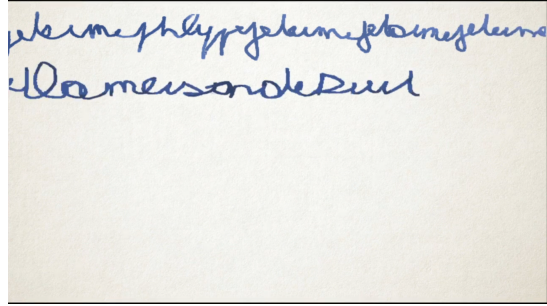 jetaimephilyppejetaimejetaimejetaime
lamaisonde